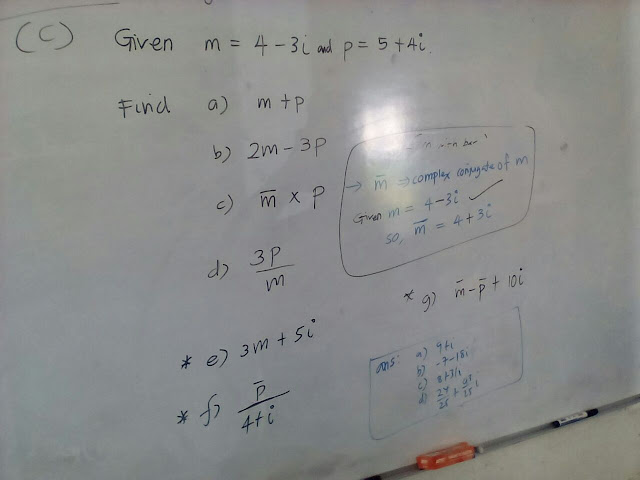 (C) Given m = 4 − 3i and p = 5 + 4i.
Find a) m + p
b) 2m − 3p
c) m̄ × p
d) 3p/m
* e) 3m + 5i
* f) p̄/(4+i)
→ m̄ ⇒ complex conjugate of m
Given m = 4 − 3i ✓
so, m̄ = 4 + 3i
* g) m̄ − p̄ + 10i
ans: a) 9+i
b) -7-18i
c) 8+31i
d) 24/25 + 93/25 i